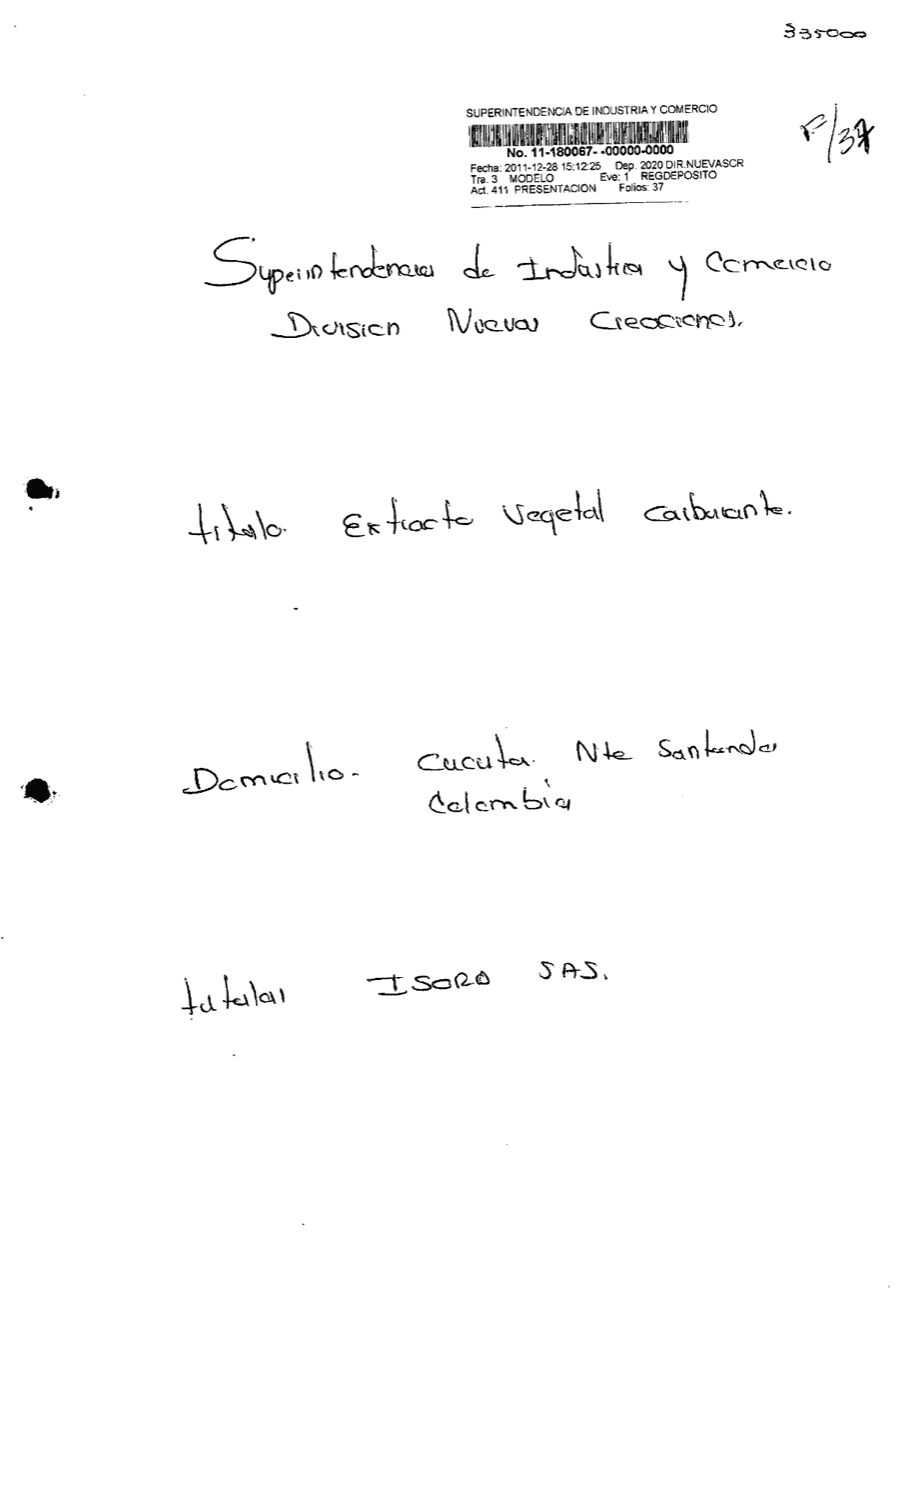 335000
SUPERINTENDENCIA DE INDUSTRIA Y COMERCIO
F/37
No. 11-180067- -00000-0000
Fecha: 2011-12-28 15:12:25 Dep. 2020 DIR.NUEVASCR
Tra. 3 MODELO Eve: 1 REGDEPOSITO
Act. 411 PRESENTACION Folios: 37
Superintendencia de Industria y Comercio
Division Nuevas Creaciones.
titulo. Extracto Vegetal Carburante.
Domicilio. Cucuta. Nte Santander
Colombia
titular ISORO SAS.